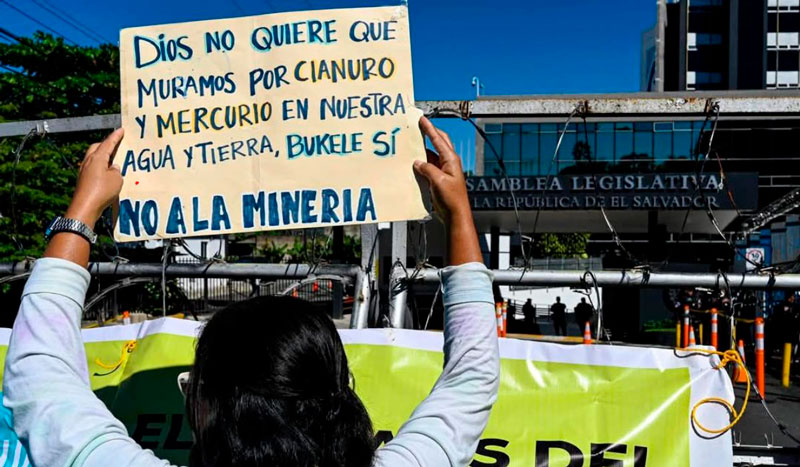 DIOS NO QUIERE QUE
MURAMOS POR CIANURO
Y MERCURIO EN NUESTRA
AGUA Y TIERRA, BUKELE SÍ
NO A LA MINERIA
SAMBLEA LEGISLATIVA
LA REPÚBLICA DE EL SALVADOR
DEL